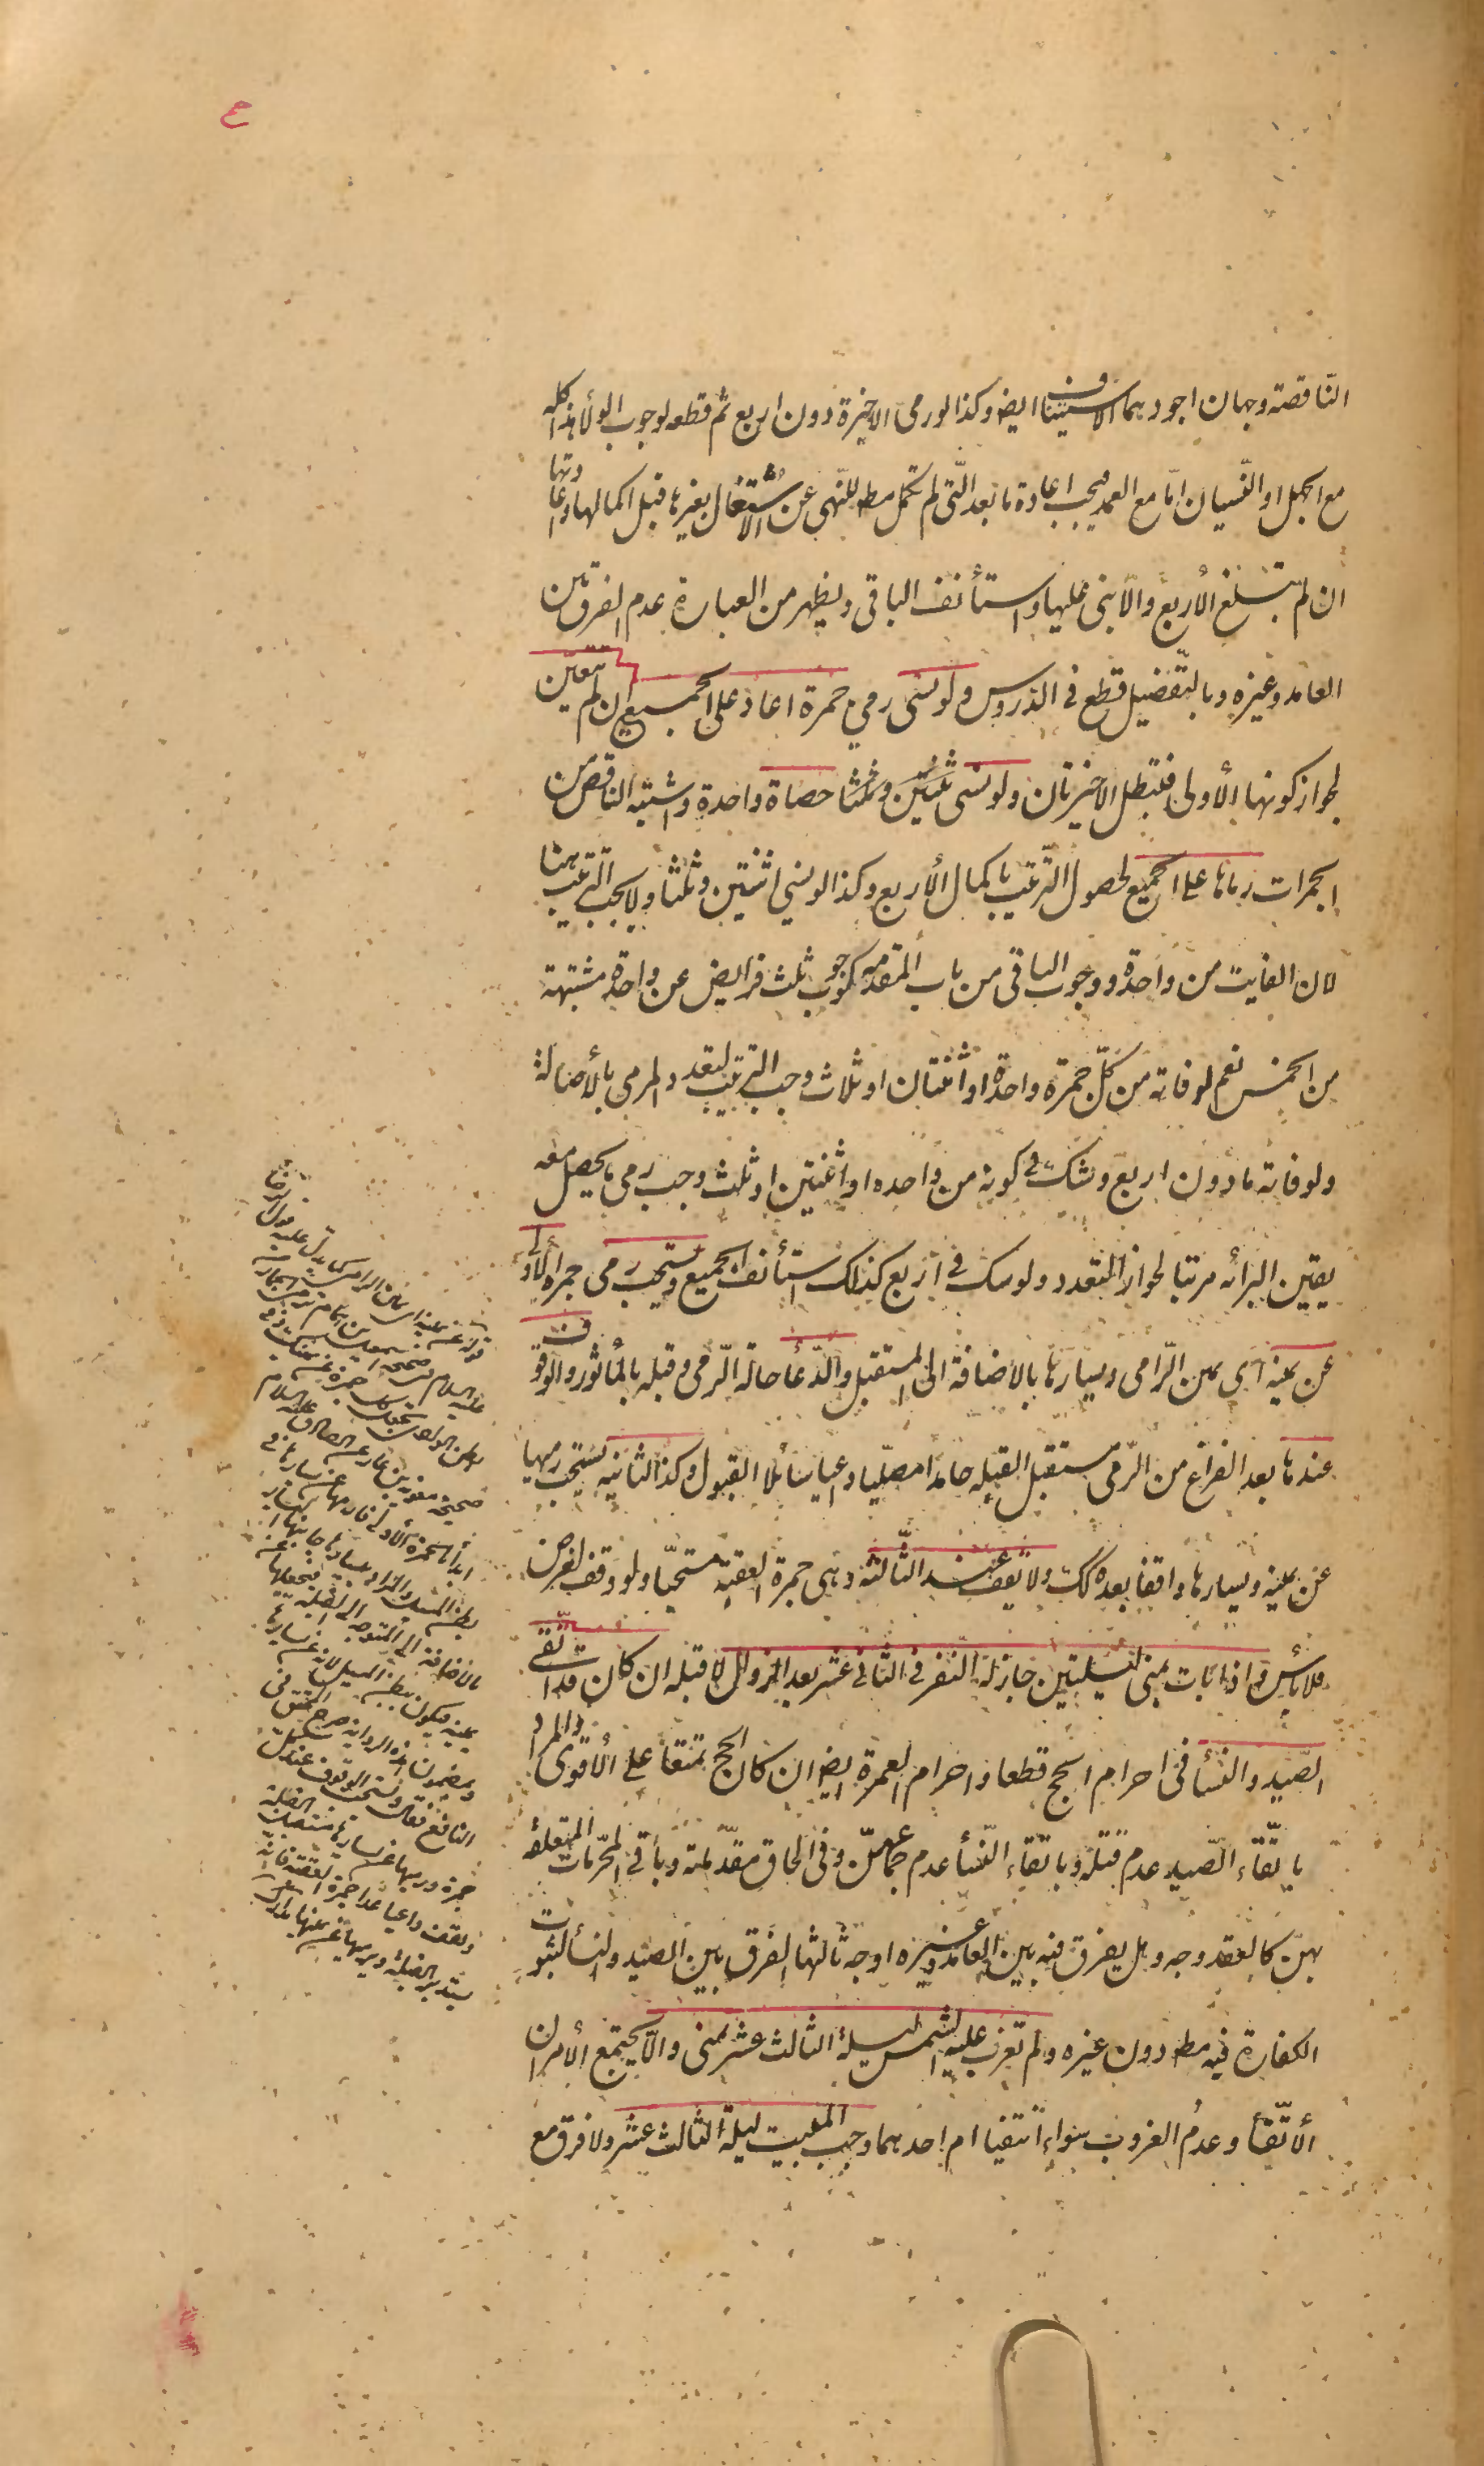 ع
النّاقصة وجهان اجودهما الاستيناف ايض وكذا لو رمى الاخيرة دون اربع ثم قطعه لوجوب الولأ هذا كله
مع الجهل او النّسيان امّا مع العمد فيجب اعادة ما بعد الّتى لم تكمل مط للنّهى عن الاشتغال بغيرها قبل اكمالها واعادتها
ان لم تبلغ الأربع والّا بنى عليها واستأنف الباقى ويظهر من العبارة عدم الفرق بين
العامد وغيره وبالتّفصيل قطع فى الدروس ولو نسى رمي جمرة اعاد على الجميع ان لم تتعيّن
لجواز كونها الأولى فتبطل الاخيرتان ولو نسى حصاة واحدة واشتبه الناقص من
الجمرات رماها على الجميع لحصول التّرتيب باكمال الأربع وكذا لو نسي اثنتين وثلثا ولا يجب التّرتيب هنا
لان الفايت من واحدة ووجوب الباقى من باب المقدمه كوجوب ثلث فرايض عن واحدة مشتبهة
من الخمس نعم لو فاته من كلّ جمرة واحدة او اثنتان او ثلاث وجب التّرتيب لتعدد المرمى بالأصالة
ولو فاته ما دون اربع وشك فى كونه من واحده او اثنتين او ثلث وجب رمى ما يحصل معه
يقين البرائه مرتبا لجواز التعدد ولو شك فى اربع كذلك استأنف الجميع ويستحب رمى جمره الأولى
عن يمينه اى يمين الرّامى ويسارها بالاضافة الى المستقبل والدّعا حالة الرّمى وقبله بالمأثور والوقوف
عندها بعد الفراغ من الرّمى مستقبل القبلة حامدا مصلّيا داعيا سائلا القبول وكذا الثانيه يستحب رميها
عن يمينه ويسارها واقفا بعده كك ولا يقف عند الثّالثه وهى جمرة العقبة مستحبّا ولو وقف لغرض
فلا بأس واذا بات بمنى ليلتين جاز له النّفر فى الثانى عشر بعد الزوال لا قبله ان كان قد اتّقى
الصّيد والنسأ فى احرام الحج قطعا واحرام العمرة ايض ان كان الحج تمتعا على الأقوى والمراد
باتّقاء الصّيد عدم قتله وباتّقاء النّسأ عدم جماعهنّ وفى الحاق مقدّماته وباقى المحرّمات المتعلقة
بهنّ كالعقد وجه وهل يفرق فيه بين العامد وغيره اوجه ثالثها الفرق بين الصيد والنسأ لثبوت
الكفارة فيه مط دون غيره ولم تغرب عليه الشمس ليلة الثالث عشر بمنى والّا يجتمع الأمران
الأتّقأ وعدم الغروب سواء انتفيا ام احدهما وجب المبيت ليلة الثالث عشر ولا فرق مع
قوله عن يمينه اى يمين الرامى كما يدلّ عليه
صحيحة معوية بن عمار عن الصادق عليه السلام
ابدأ بالجمرة الأولى فارمها عن يسارها فى
بطن المسيل
بالاضافة الى المتوجه الى القبلة فيجعلها
يمينه فيكون ببطن المسيل لانه عن يسارها
وبمضمون هذه الرواية صرح المحقق فى
النافع فقال ويستحب الوقوف عند كل
جمرة ورميها عن يسارها مستقبل القبلة
ويقف داعيا عدا جمرة العقبة فانه
يستدبر القبلة ويرميها عن يمينها